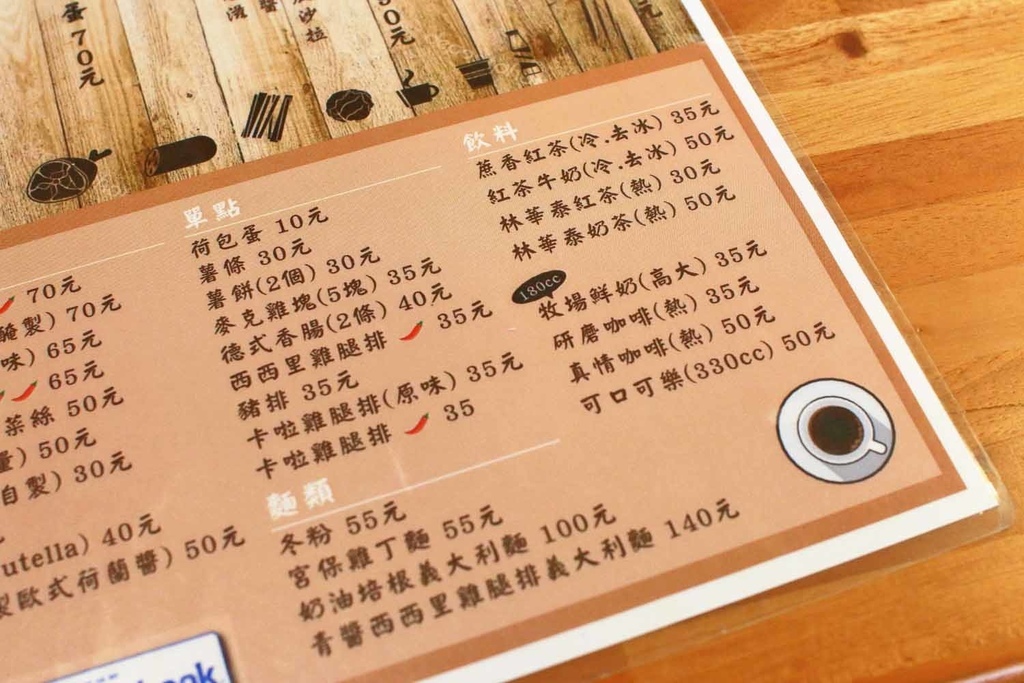 蛋70元
醬
沙拉
0元
元
70元
醃製) 70元
味) 65元
65元
菜絲 50元
量) 50元
自製) 30元
utella) 40元
製歐式荷蘭醬) 50元
單點
荷包蛋 10元
薯條 30元
薯餅(2個) 30元
麥克雞塊(5塊) 35元
德式香腸(2條) 40元
西西里雞腿排 35元
豬排 35元
卡啦雞腿排(原味) 35元
卡啦雞腿排 35
麵類
冬粉 55元
宮保雞丁麵 55元
奶油培根義大利麵 100元
青醬西西里雞腿排義大利麵 140元
飲料
蔗香紅茶(冷.去冰) 35元
紅茶牛奶(冷.去冰) 50元
林華泰紅茶(熱) 30元
林華泰奶茶(熱) 50元
180cc
牧場鮮奶(高大) 35元
研磨咖啡(熱) 35元
真情咖啡(熱) 50元
可口可樂(330cc) 50元
ook